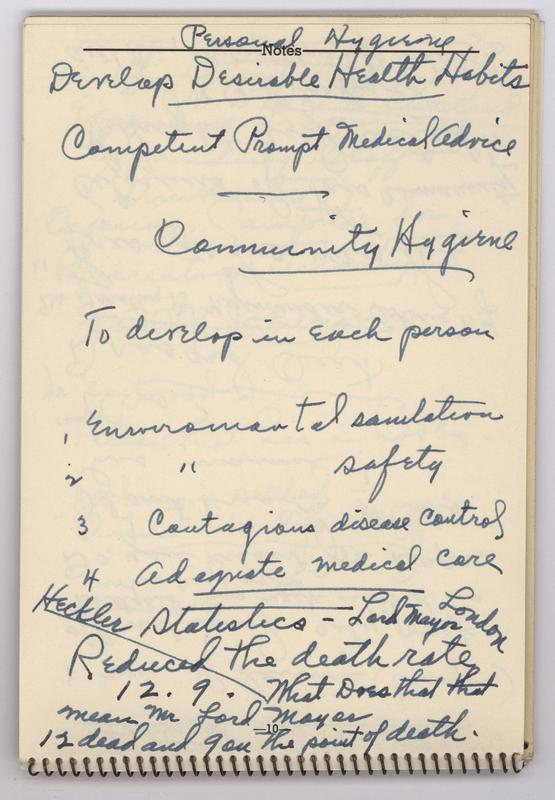 Personal Hygiene
Notes
Develop Desirable Health Habits
Competent Prompt Medical Advice
Community Hygiene
To develop in each person
1 Enviromental sanitation
2 " safety
3 Contagious disease control
4 Adequate medical care
Heckler Statistics - Lord Mayor London
Reduced the death rate
12.9. What Does that that
mean Mr Lord Mayor
—10—
12 dead and 9 on the point of death.